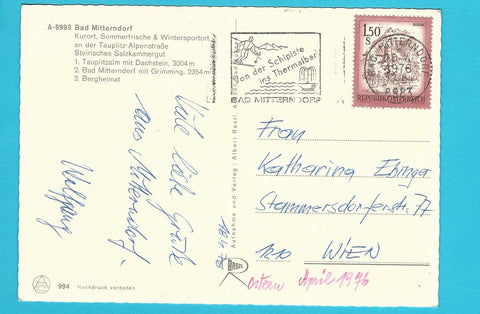 A-8993 Bad Mitterndorf
Kurort, Sommerfrische & Wintersportort
an der Tauplitz-Alpenstraße
Steirisches Salzkammergut
1. Tauplitzalm mit Dachstein, 3004 m
2. Bad Mitterndorf mit Grimming, 2354 m
3. Bergheimat
Viele liebe Grüße
aus Mitterndorf.
Wolfgang
994 Nachdruck verboten.
Aufnahme und Verlag: Albert Rastl,
RASTL
von der Schipiste
ins Thermalbad
BAD MITTERNDORF
1.50
REPUBLIK ÖSTERREICH
BAD MITTERNDORF
1976
8983
Frau
Katharina Ebinger
Stammersdorferstr. 77
1210 WIEN
Ostern April 1976